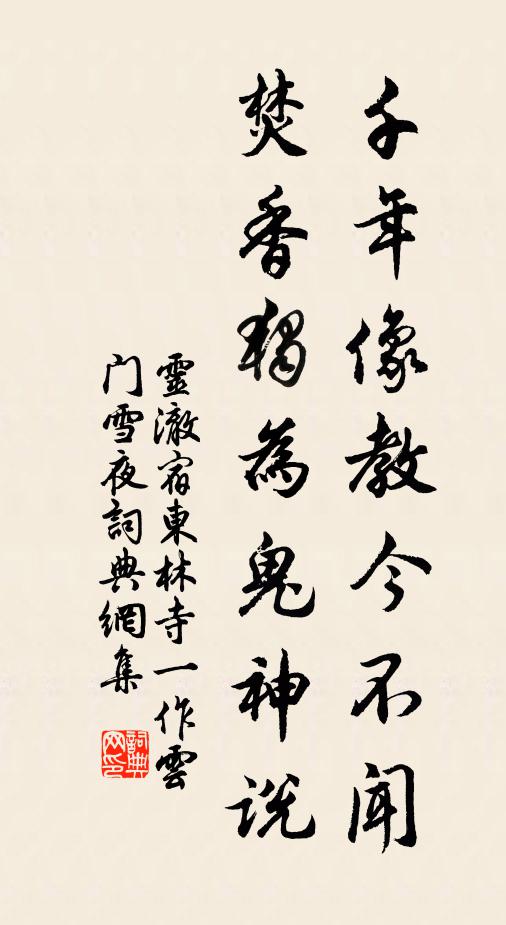 千年像教今不聞
焚香獨為鬼神說
靈澈宿東林寺一作雲
门雪夜詞典網集
詞典
网印